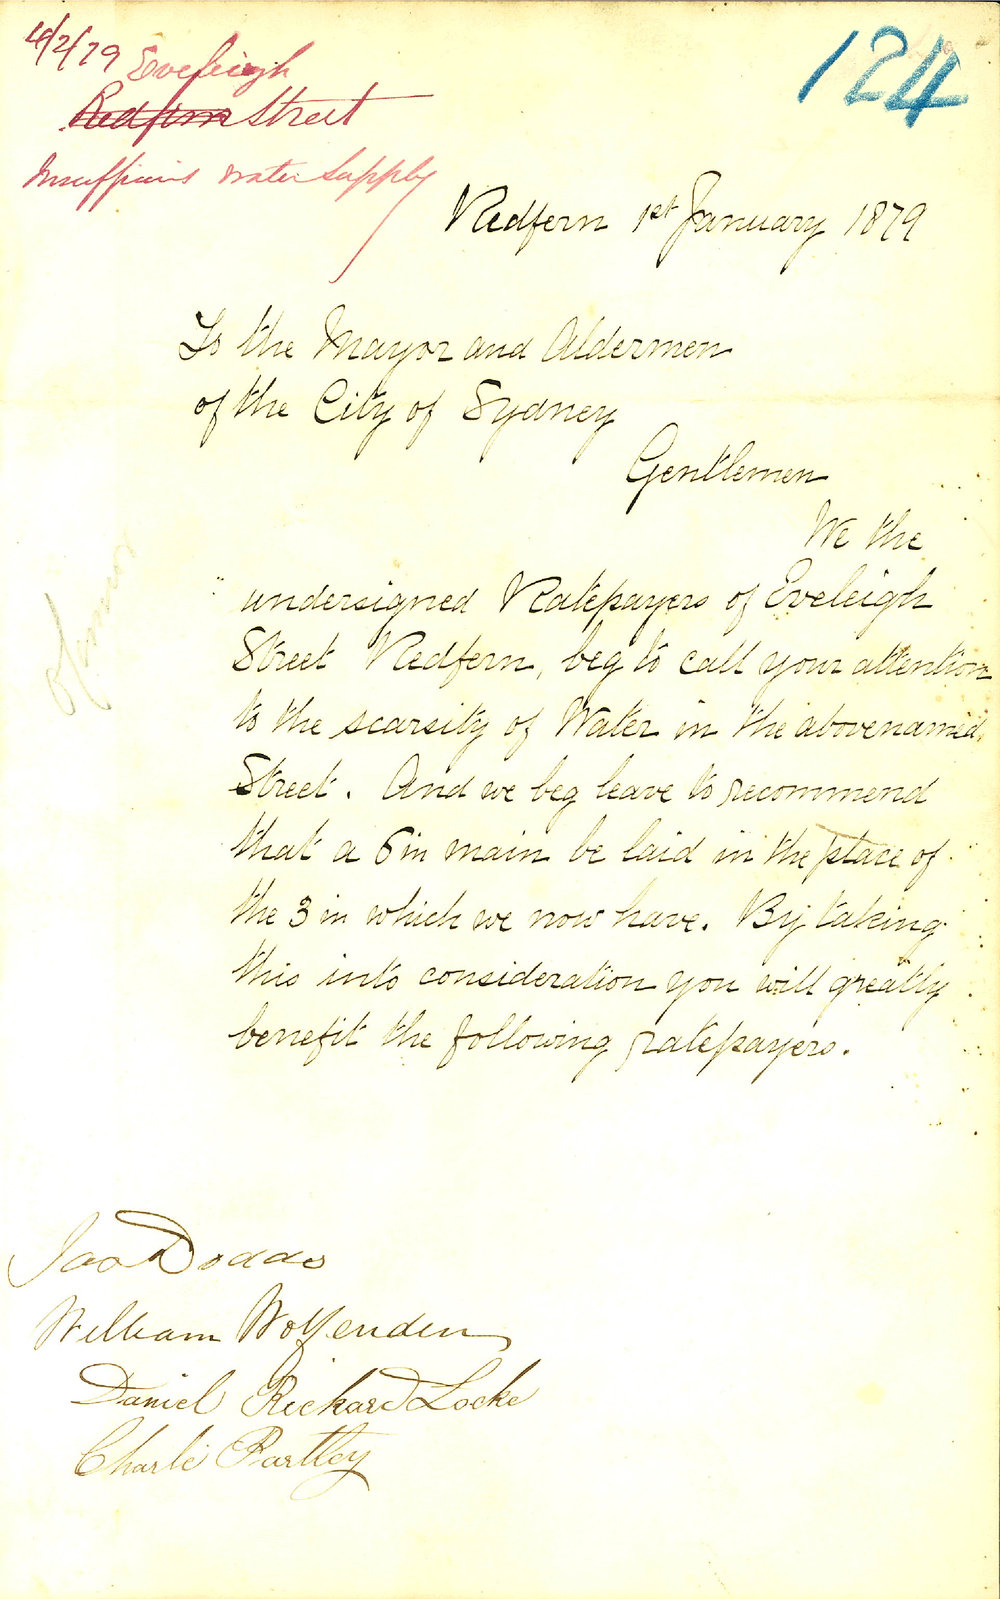 4/2/79 Eveleigh
Redfern Street
Insufficient water supply
124
Redfern 1st January 1879
To the Mayor and Aldermen
of the City of Sydney
Gentlemen
We the
undersigned Ratepayers of Eveleigh
Street Redfern, beg to call your attention
to the scarsity of Water in the abovenamed
Street. And we beg leave to recommend
that a 6 in main be laid in the place of
the 3 in which we now have. By taking
this into consideration you will greatly
benefit the following ratepayers.
Jas Dodds
William Wolfenden
Daniel Richard Locke
Charle Partley